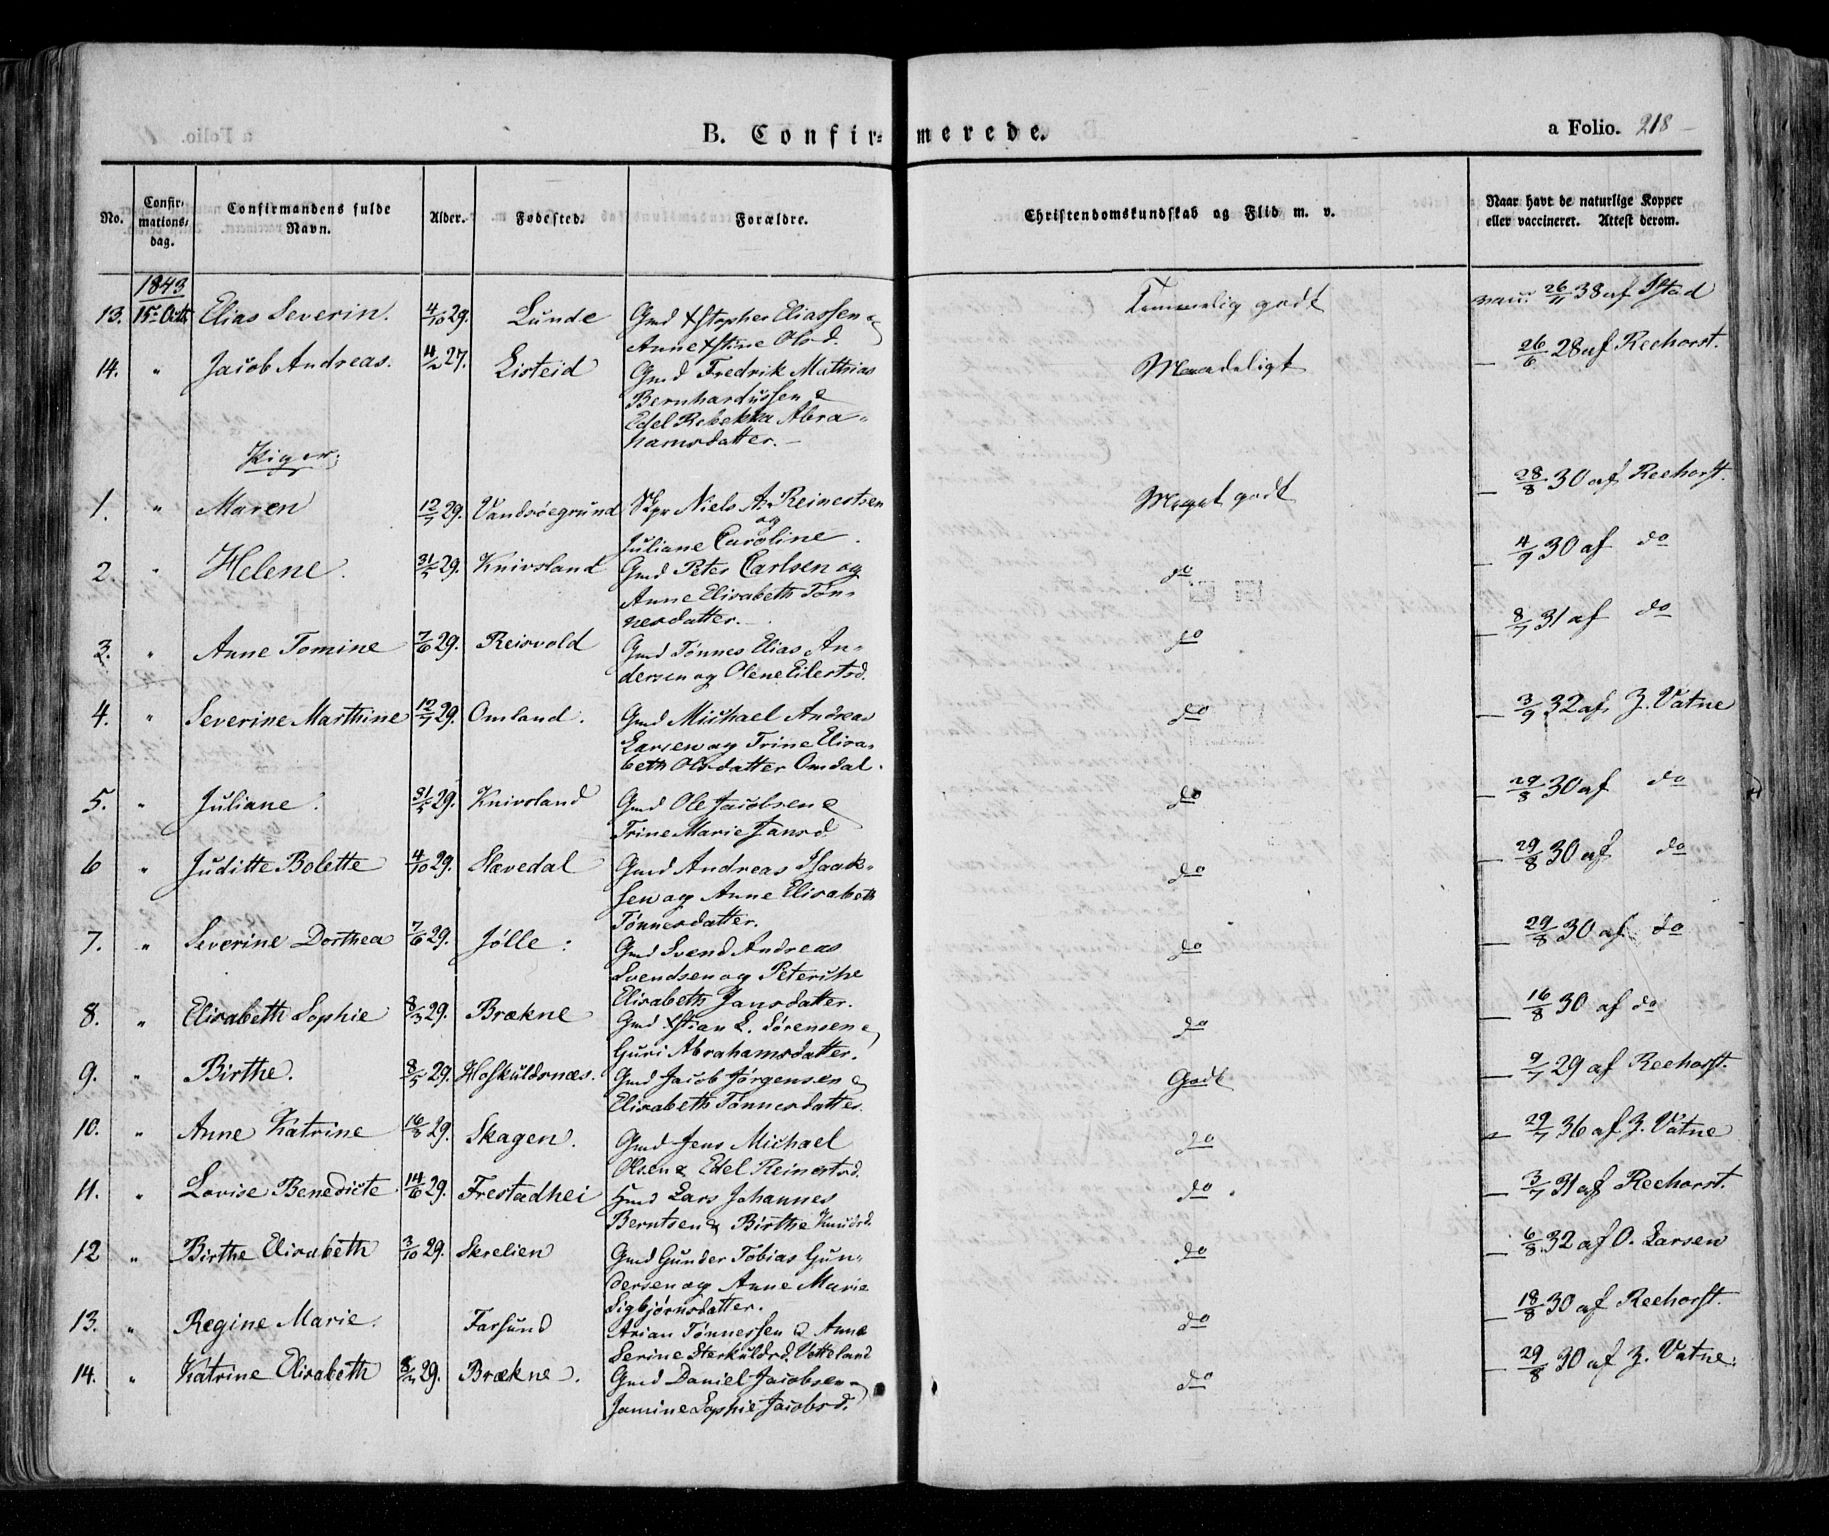 B. Confirmerede.
a Folio. 218
No.
Confirmations-dag.
Confirmandens fulde Navn.
Alder.
Fødested.
Forældre.
Christendomskundskab og Flid m. v.
Naar havt de naturlige Kopper eller vaccineret. Attest derom.
1843
13. 15de Octb Elias Severin. 4/10 29. Lunde Gmd Xstopher Eliassen & Temmelig godt vacc. 26/11 38 af Stad
Anne Xstine Olsd.
14. " Jacob Andreas. 4/2 27. Listeid Gmd Fredrik Mathias Maadeligt — 26/6 28 af Reehorst.
Bernhardussen &
Edel Rebekka Abra-
hamsdatter.—
Piger.
1. " Maren 12/7 29. Vandsøegrund Niels A. Reinertsen Meget godt — 28/8 30 af Reehorst.
og
Juliane Caroline.
2. " Helene. 31/5 29. Knivsland Gmd Peter Carlsen og do 4/9 30 af do
Anne Elisabeth Tøn-
nesdatter.—
3. " Anne Tomine 7/6 29. Reisvold Gmd Tønnes Elias An- do — 8/7 31 af do
dersen og Olene Eilertsd.
4. " Severine Marthine 12/7 29. Omland. Gmd Michael Andreas do — 3/9 32 af Z. Vatne
Larsen og Trine Elisa-
beth Olsdatter Omdal.
5. " Juliane. 31/5 29. Knivsland Gmd Ole Jacobsen & do — 29/8 30 af do
Trine Marie Jansd.
6 " Juditte Bolette 4/10 29. Stavedal Gmd Andreas Isaak- do — 29/8 30 af do
sen og Anne Elisabeth
Tønnesdatter.
7. " Severine Dorthea 7/6 29. Jølle. Gmd Svend Andreas do — 29/8 30 af do
Svendsen og Peterine
Elisabeth Jansdatter.
8. " Elisabeth Sophie 8/3 29. Brækne Gmd Xstian L. Sørensen & do — 16/8 30 af do
Guri Abrahamsdatter.
9. " Birthe. 8/5 29. Hoskuldsnæs. Gmd Jacob Jørgensen & Godt — 9/7 29 af Reehorst.
Elisabeth Tønnesdatter.
10. " Anne Katrine 16/8 29. Skagen. Gmd Jens Michael do — 29/7 36 af Z. Vatne
Olsen & Edel Reinertsd.
11. " Lovise Benedicte 14/6 29. Frestadhei Hmd Lars Johannes do. — 3/7 31 af Reehorst.
Berntsen & Birthe Knudsd.
12 " Birthe Elisabeth 3/10 29. Skrelien Gmd Gunder Tobias Gun- do — 6/8 32 af O. Larsen
dersen og Anne Marie
Sigbjørnsdatter.
13. " Regine Marie. Farsund Arian Tønnessen & Anne do — 18/8 30 af Reehorst.
Serine Sterkuldsd. Vatteland
14. " Katrine Elisabeth 8/7 29. Brækne. Gmd Daniel Jacobsen & do — 29/8 30 af Z. Vatne.
Jamine Sophie Jacobsd.